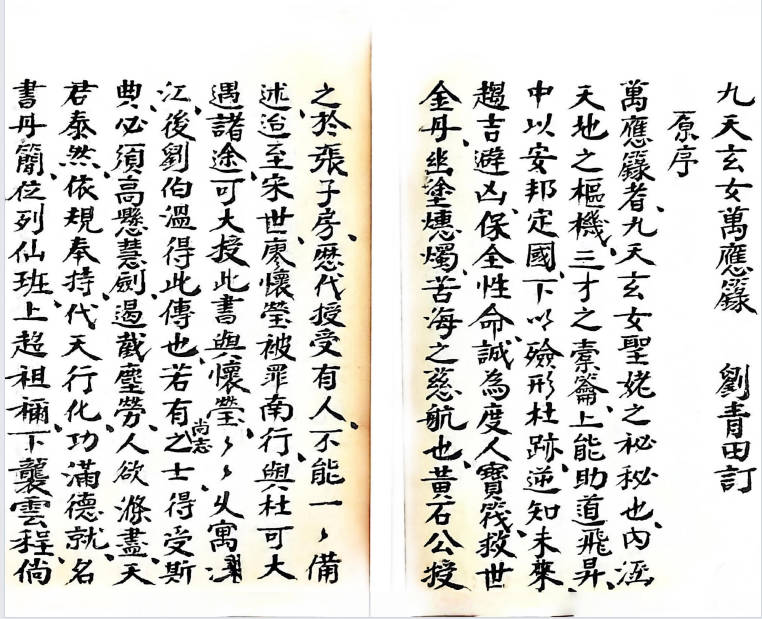 九天玄女萬應籙　劉青田訂
原序
萬應籙者、九天玄女聖姥之祕秘也、內涵
天地之樞機、三才之橐籥、上能助道飛昇、
中以安邦定國、下以殮形杜跡、逆知未來、
趨吉避凶、保全性命、誠為度人寶筏、救世
金丹、幽塗燻燭、苦海之慈航也、黃石公授
之於張子房、歷代授受有人、不能一〻備
述、迨至宋世、廖懷瑩被罪南行、與杜可大
遇諸途、可大授此書與懷瑩、〻〻乆寓
江、後劉伯溫得此傳也、若有尚志之士得受斯
典、必須高懸慧劍、遏截塵勞、人欲滌盡、天
君泰然、依規奉持、代天行化、功滿德就、名
書丹簡、位列仙班、上超祖禰、下襲雲程、倘